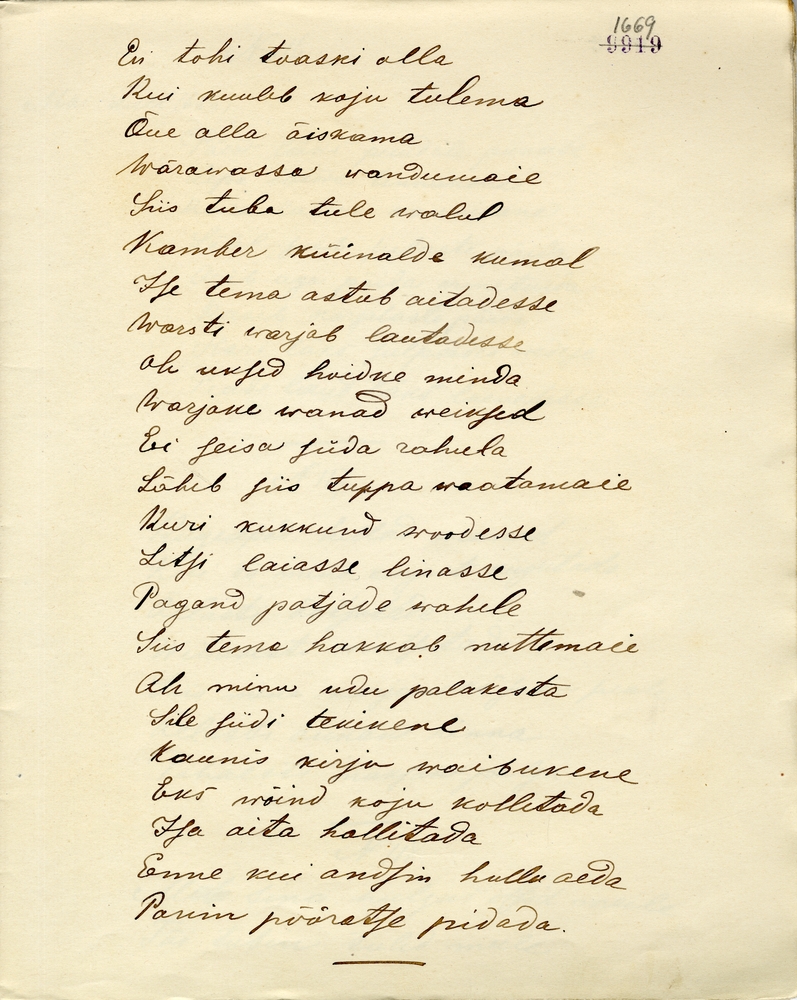 1669
9919
Ei tohi toaski olla
Kui kuuleb koju tulema
Õue alla õiskama
Wärawassa wandumaie
Siis tuba tule walul
Kamber küünalde kumal
Ise tema astub aitadesse
Warsti warjab lautadesse
Oh uksed hoidke minda
Warjake wanad weiksed
Ei seisa süda rahula
Läheb siis tuppa waatamaie
Kuri kukkund woodesse
Litsi laiasse linasse
Pagand patjade wahele
Siis tema hakkab nuttemaie
Oh minu udu palakesta
Sile siidi tekikene
Kaunis kirju waibukene
Eks wõind koju kollitada
Isa aita hallitada
Enne kui andsin hullu aeda
Panin pööratse pidada.